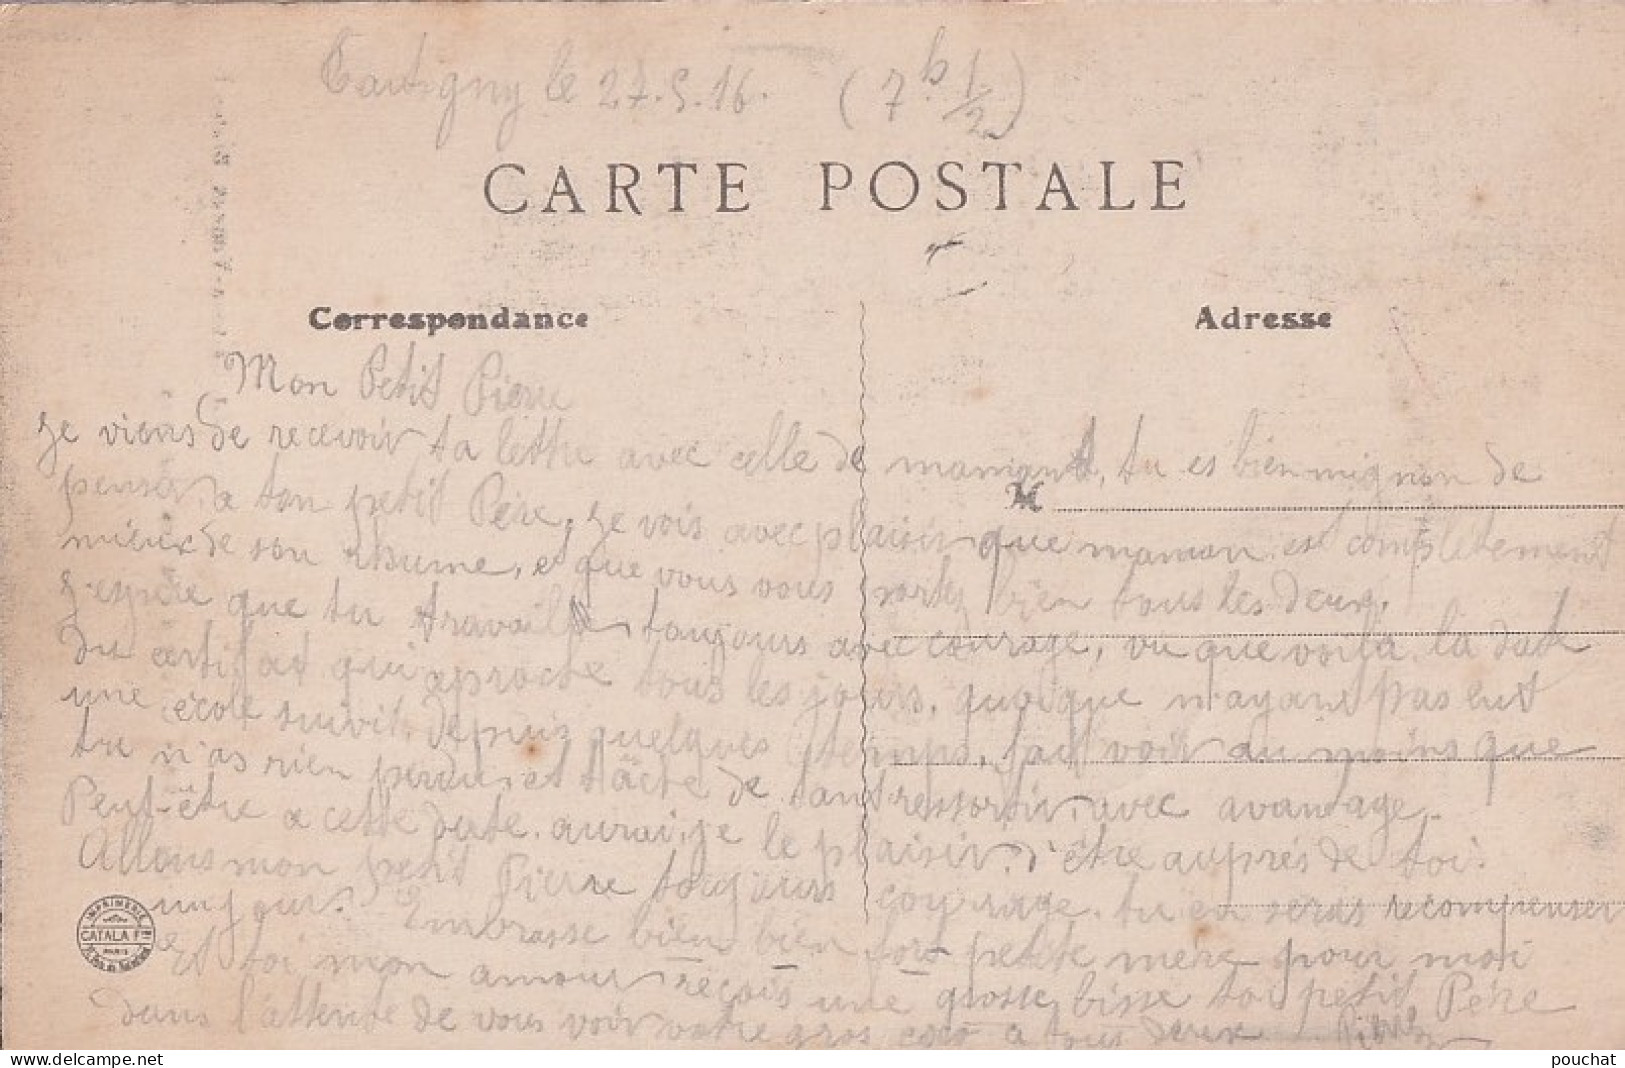 Tartigny le 27.5.16. (7h 1/2)
CARTE POSTALE
Correspondance
Adresse
Mon Petit Pierre
Je viens de recevoir ta lettre avec celle de maman, tu es bien mignon de
penser a ton petit Père, je vois avec plaisir que maman est complètement
M
mieux de son rhume, et que vous vous portez bien tous les deux.
J'espère que tu travaille toujours avec courage, vu que voila la date
du certificat qui aproche tous les jours, quoique n'ayant pas eut
une école suivit, depuis quelques temps, fait voir au moins que
tu n'as rien perdu, et tâche de t'en ressortir avec avantage.
Peut-être a cette date, aurai-je le plaisir d'être auprés de toi.
Allons mon petit Pierre toujours courage, tu en seras recompenser
un jour. Embrasse bien bien fort petite mère pour moi
Et toi mon amour reçois une grosse bisse ton petit Père
dans l'attende de vous voir votre gros coco a tous deux. Pierre
IMPRIMERIE
CATALA F.
PARIS
pouchat